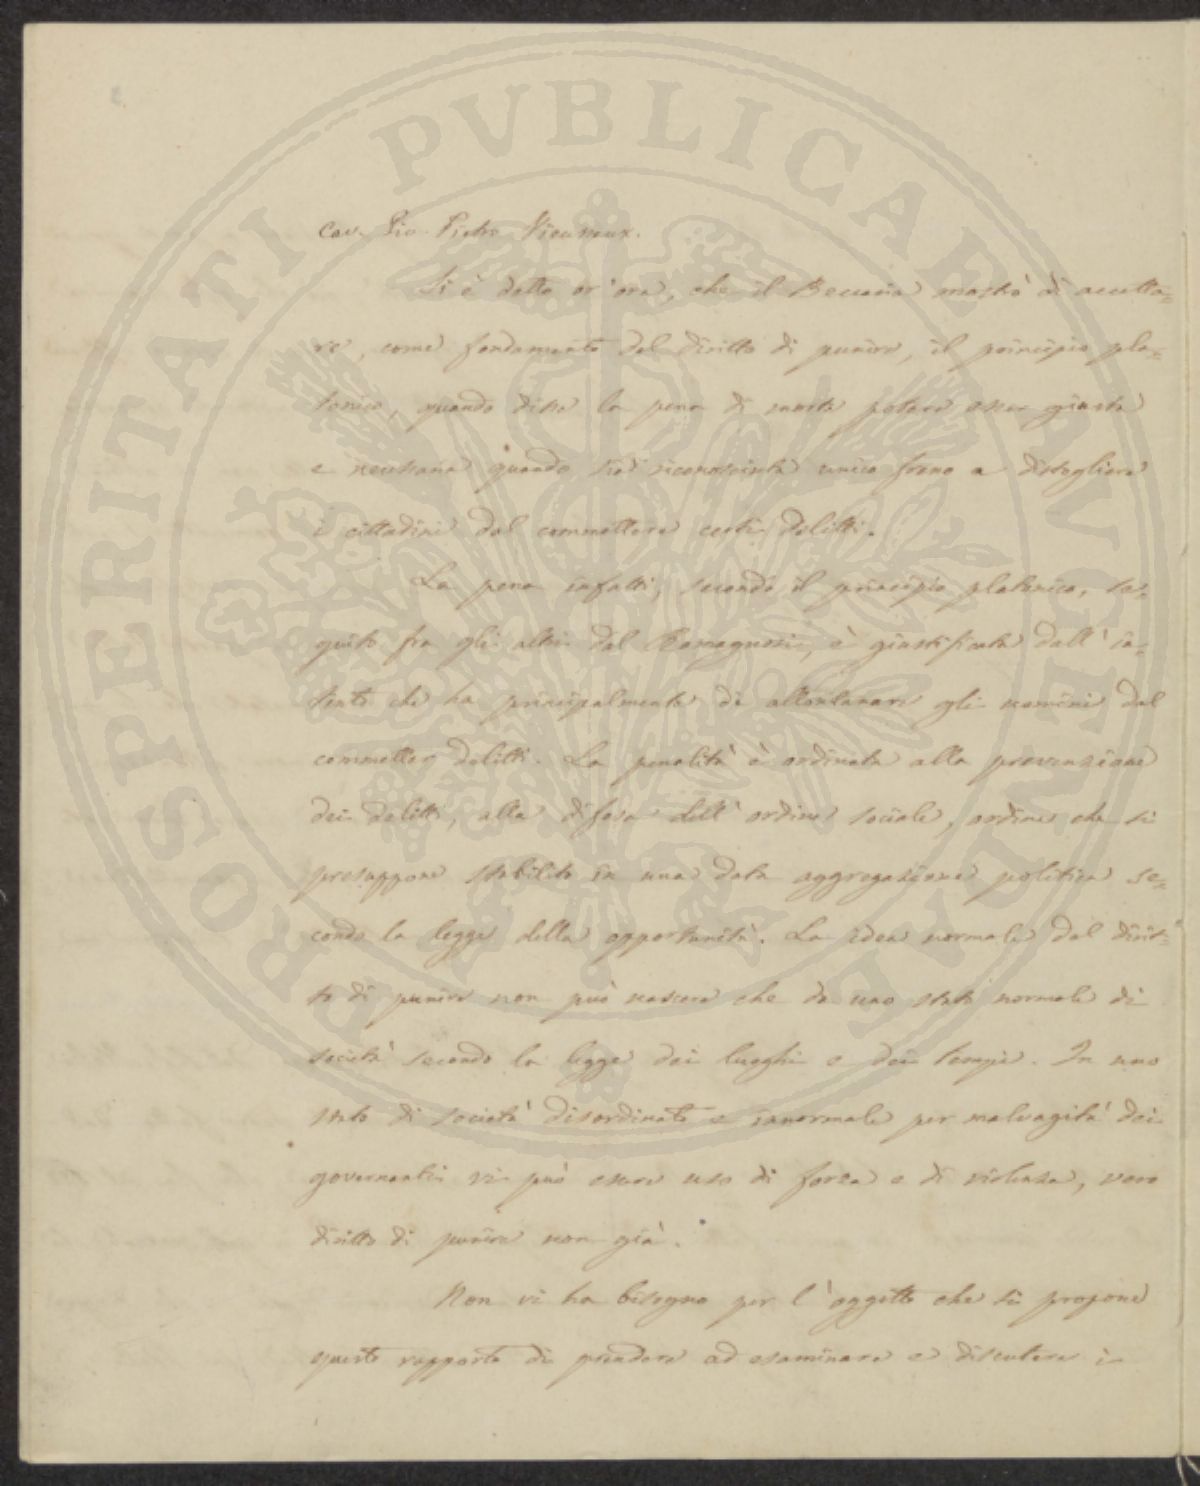 PROSPERITATI PVBLICAE AVGENDAE
Cav. Gio. Pietro Vieusseux.
Si è detto or'ora, che il Beccaria mostrò di accetta=
re, come fondamento del diritto di punire, il principio pla=
tonico, quando disse la pena di morte potere esser giusta
e necessaria quando sia riconosciuta unico freno a distogliere
i cittadini dal commettere certi delitti.
La pena infatti, secondo il principio platonico, se=
guito fra gli altri dal Romagnosi, è giustificata dall'in=
tento che ha principalmente di allontanare gli uomini dal
commetter delitti. La penalità è ordinata alla prevenzione
dei delitti, alla difesa dell'ordine sociale, ordine che si
presuppone stabilito in una data aggregazione politica se=
condo la legge della opportunità. La idea normale del dirit=
to di punire non può nascere che da uno stato normale di
società secondo la legge dei luoghi e dei tempi. In uno
stato di società disordinato e innormale per malvagità dei
governanti vi può essere uso di forza e di violenza, vero
diritto di punire non già.
Non vi ha bisogno per l'oggetto che si propone
questo rapporto di prendere ad esaminare e discutere i